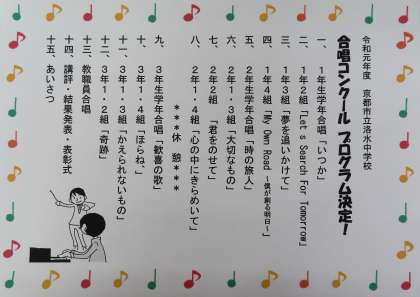 令和元年度　京都市立洛水中学校
合唱コンクール プログラム決定！
一、１年生学年合唱「いつか」
二、１年２組「Let's Search For Tomorrow」
三、１年３組「夢を追いかけて」
四、１年４組「My Own Road ～僕が創る明日～」
五、２年生学年合唱「時の旅人」
六、２年１・３組「大切なもの」
七、２年２組　「君をのせて」
八、２年１・４組「心の中にきらめいて」
＊＊＊休　憩＊＊＊
九、３年生学年合唱「歓喜の歌」
十、３年１・４組「ほらね、」
十一、３年１・３組「かえられないもの」
十二、３年１・２組「奇跡」
十三、教職員合唱
十四、講評・結果発表・表彰式
十五、あいさつ